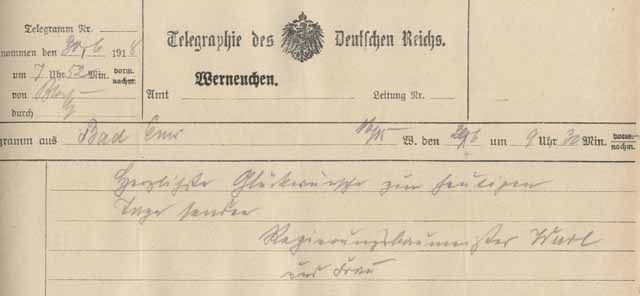 Telegramm Nr.
nommen den 30/6 1918
um 7 Uhr 52 Min. vorm. nachm.
von
durch
Telegraphie des Deutschen Reichs.
Werneuchen.
Amt Leitung Nr.
gramm aus Bad Ems 16/15 W. den 29/6 um 9 Uhr 30 Min. vorm. nachm.
Herzlichste Glückwünsche zum heutigen
Tage senden
Regierungsbaumeister
und Frau